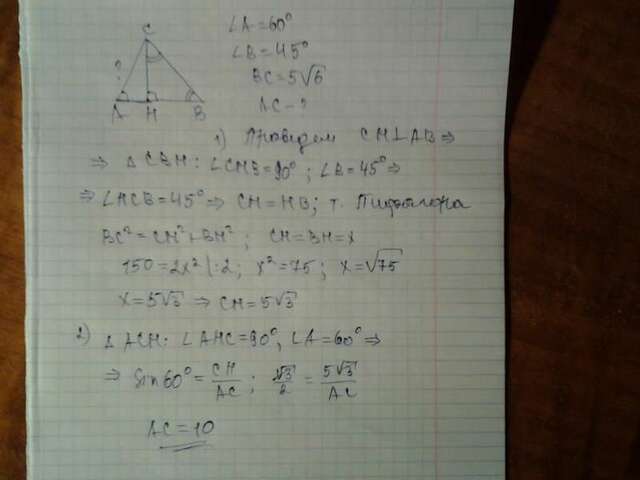 C
?
A H B
∠A=60°
∠B=45°
BC=5√6
AC-?
1) Проведем CH⊥AB ⇒
⇒ △CBH: ∠CHB=90°; ∠B=45° ⇒
⇒ ∠HCB=45° ⇒ CH=HB; т. Пифагора
BC²=CH²+BH²; CH=BH=x
150=2x² |:2; x²=75; x=√75
x=5√3 ⇒ CH=5√3
2) △ACH: ∠AHC=90°, ∠A=60° ⇒
⇒ Sin60°=CH/AC; √3/2=5√3/AC
AC=10